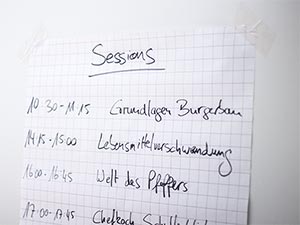 Sessions
10:30-11:15 Grundlagen Burgerbau
14:15-15:00 Lebensmittelverschwendung
16:00-16:45 Welt des Pfeffers
17:00-17:45 Chefkoch